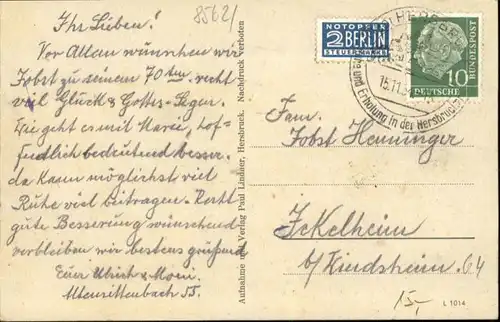 85621
Ihr Lieben!
Vor Allem wünschen wir
Jobst zu seinem 70ten recht
viel Glück & Gottes Segen.
Wie geht es mit Marie, hof-
fendlich bedeutend besser.
da kann möglichst viel
Ruhe viel beitragen. Recht
gute Besserung wünschend
verbleiben wir bestens grüßend
Eure Ulrich &
55.
Aufnahme und Verlag Paul Lindner, Hersbruck. Nachdruck verboten
NOTOPFER
2 BERLIN
STEUERMARKE
HERSBRUCK
15.11.5
und Erholung in der Hersbrucker
10
DEUTSCHE
BUNDESPOST
Fam.
Jobst Henninger
Ickelheim
b/Windsheim 64
L 1014